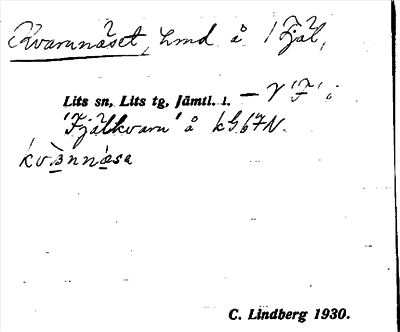 Kvarnnäset, hmd å 1 Fjäl,
Lits sn, Lits tg, Jämtl. l. — V 'F' i
'Fjälkvarn' å kG 67N.
C. Lindberg 1930.